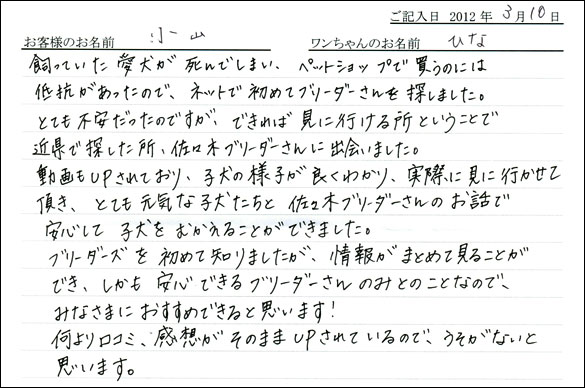 ご記入日 2012 年 3月10日
お客様のお名前 小山 ワンちゃんのお名前 ひな
飼っていた愛犬が死んでしまい、ペットショップで買うのには
低抗があったので、ネットで初めてブリーダーさんを探しました。
とても不安だったのですが、できれば見に行ける所ということで
近県で探した所、佐々木ブリーダーさんに出会いました。
動画もUPされており、子犬の様子が良くわかり、実際に見に行かせて
頂き、とても元気な子犬たちと佐々木ブリーダーさんのお話で
安心して子犬をむかえることができました。
ブリーダーズを初めて知りましたが、情報がまとめて見ることが
でき、しかも安心できるブリーダーさんのみとのことなので、
みなさまにおすすめできると思います!
何より口コミ、感想がそのままUPされているので、うそがないと
思います。